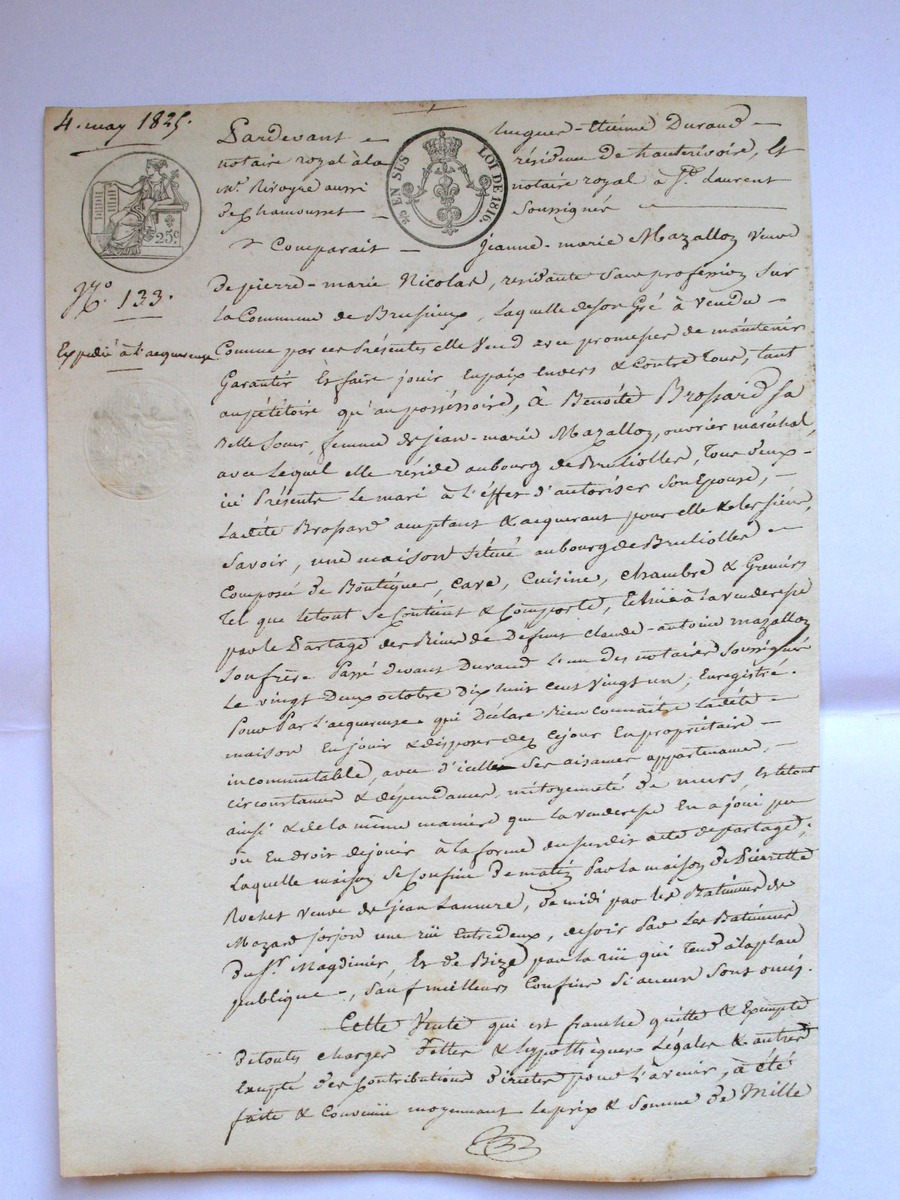 4. may 1825.
Pardevant - hugues-Etienne Durand -
notaire royal à la résidence de hauterivoire, Et
Mr. Rivoyre aussi notaire royal à St. Laurent
de Chamousset - Soussignés
EN SUS LOI DE 1816.
25c
Comparait - Jeanne-marie Mazallon veuve
N.o 133.
De pierre-marie Nicolas, residante sans profession sur
la Commune de Brussieux, Laquelle de son Gré à vendu -
Expedié à l'acquereuse
Comme par ces Présentes elle Vend avec promesse de maintenir
Garantir Et faire jouir En paix envers & contre Tous, tant
au pétitoire qu'au posséssoire, à Benoite Brossard sa
Belle Soeur, femme de jean-marie Mazallon, ouvrier maréchal,
avec Lequel elle réside au bourg de Brullioles, Tous deux -
ici Présents Le mari à L'éffet d'autoriser Son Epouse, -
Ladite Brossard acceptant & acquerant pour elle & les siens,
Savoir, une maison située au bourg de Brullioles -
Composée de Boutiques, Cave, Cuisine, Chambre & Greniers
Tel que le tout se Contient & Comporte, Echue à la venderesse
par le Partage des Biens de Défunt Claude-antoine mazallon
Son frère Passé devant Durand L'un des notaires Soussignés
Le vingt Deux octobre Dix huit cent vingt un; Enregistré.
Pour Par L'acquereuse qui Déclare Bien connaître Ladite -
maison En jouir & disposer dez Cejour En propriétaire -
incommutable, avec d'icelle Ses aisances appartenances, -
circonstances & dépendances, mitoyenneté de murs, & le tout
ainsi & de la même manière que la venderesse En a joui pu
ou En droit de jouir à la forme du susdit acte de partage;
Laquelle maison Se Confine De matin Par la maison De Pierrette
Rochet veuve de jean Lamure, De midi par les Batimens de
Mazard une rüe Entredeux, de soir Par Les Batimens
Du Sr. Magdinier, Et de Bize par la rüe qui Tend à la place
publique -, Sauf meilleurs Confins Si aucuns Sont omis.
Cette Vente qui est franche quitte & Exempte
De toutes charges Dettes & hypothèques Légales & autres
Excepté des Contributions Directes pour L'avenir, à été
faite & Convenue moyennant Le prix & Somme De Mille